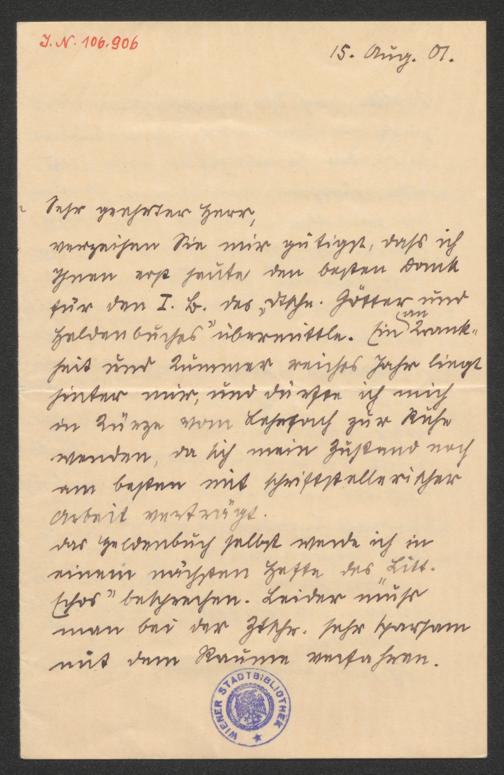 J. N. 106.906
15. Aug. 01.
Sehr geehrter Herr,
verzeihen Sie mir gütigst, daß ich
Ihnen erst heute den besten Dank
für den I. B. des „Dtsche. Götter und
Heldenbuches" übermittle. Ein an Krank-
heit und Kummer reiches Jahr liegt
hinter mir, und dürfte ich mich
in Kürze vom Lehrfach zur Ruhe
wenden, da sich mein Zustand noch
am besten mit schriftstellerischer
Arbeit verträgt.
Das Heldenbuch selbst werde ich in
einem nächsten Hefte des „Litt.
Echos" besprechen. Leider muß
man bei der Ztschr. sehr sparsam
mit dem Raume verfahren.
WIENER STADTBIBLIOTHEK